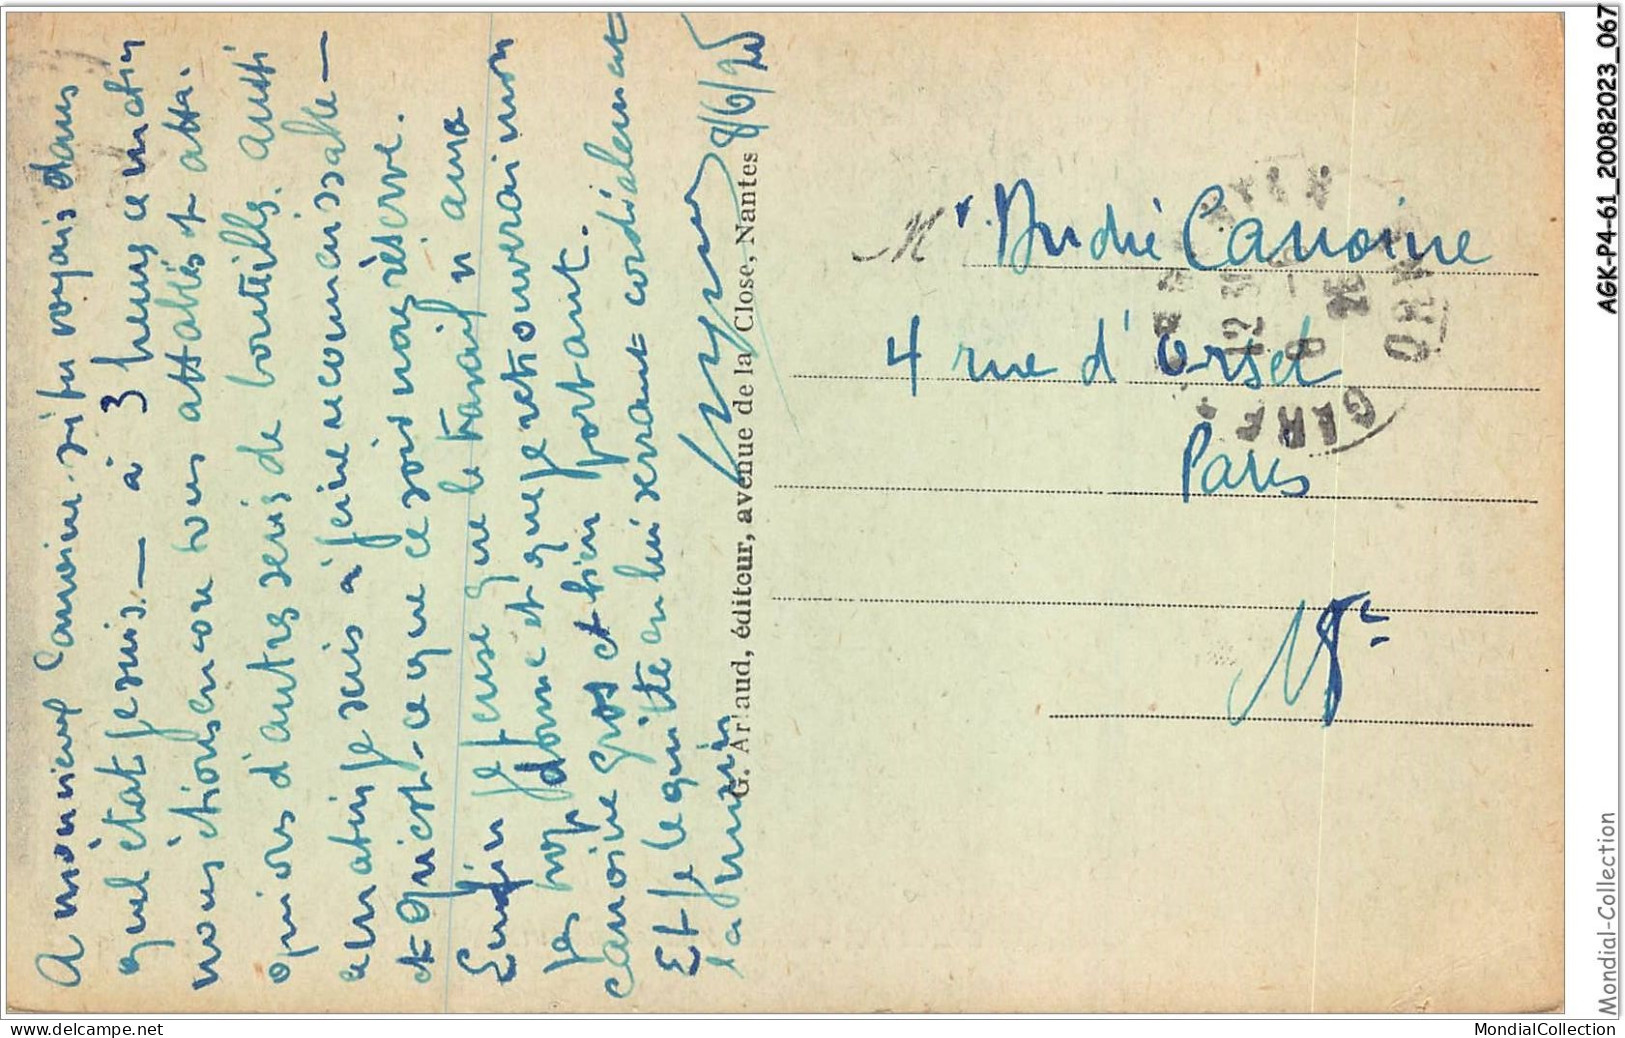 A monsieur Canoine. si tu voyais dans
quel état je suis. — à 3 heures ce matin
nous étions encore tous attablés et atta-
quions d'autres genis de bouteilles. aussi
ce matin je suis à peine reconnaissable —
et qu'est-ce que ce soir nous réserve.
Enfin je pense que le travail n'aura
pas trop donné et que je retrouverai mon
canoine gros et bien portant.
Et je le quitte en lui serrant cordialement
la
8/6/25
G. Arlaud, éditeur, avenue de la Close, Nantes
Mr André Canoine
4 rue d'Orsel
Paris
GARE
ORNE
AGK-P4-61_20082023_067
Mondial-Collection
delcampe.net
MondialCollection